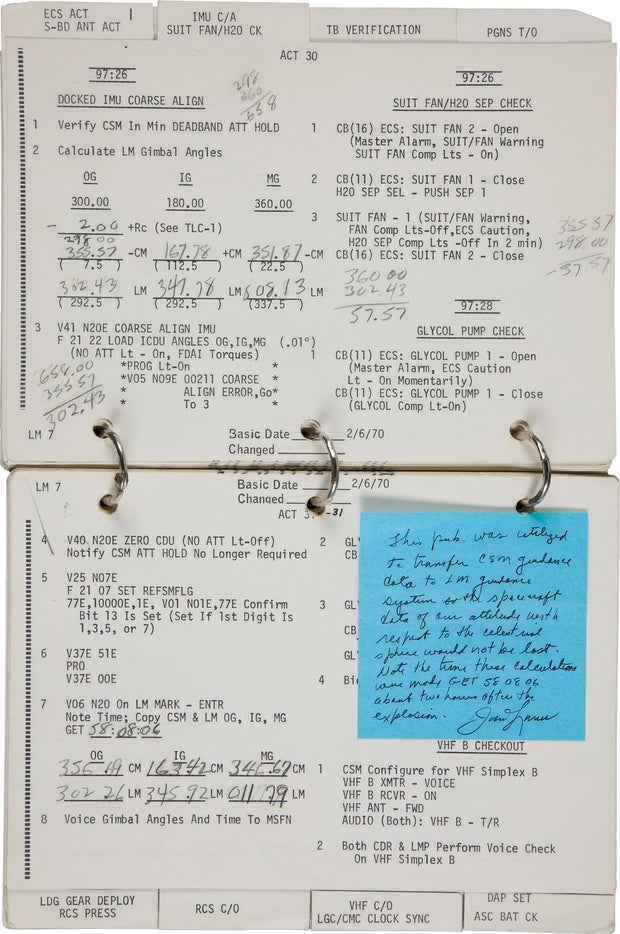 ECS ACT
S-BD ANT ACT
IMU C/A
SUIT FAN/H2O CK
TB VERIFICATION
PGNS T/O
ACT 30
97:26
DOCKED IMU COARSE ALIGN
298
360
658
1 Verify CSM In Min DEADBAND ATT HOLD
2 Calculate LM Gimbal Angles
OG IG MG
300.00 180.00 360.00
- 2.00 +Rc (See TLC-1)
298 00
355.57 -CM 167.78 +CM 351.87 -CM
( 7.5 ) (112.5 ) ( 22.5 )
302.43 LM 347.78 LM 608.13 LM
( 292.5 ) ( 292.5 ) (337.5 )
3 V41 N20E COARSE ALIGN IMU
F 21 22 LOAD ICDU ANGLES OG,IG,MG (.01°)
(NO ATT Lt - On, FDAI Torques)
*PROG Lt-On *
*V05 N09E 00211 COARSE *
* ALIGN ERROR,Go*
* To 3 *
658.00
355.57
302.43
LM 7
Basic Date 2/6/70
Changed
97:26
SUIT FAN/H2O SEP CHECK
1 CB(16) ECS: SUIT FAN 2 - Open
(Master Alarm, SUIT/FAN Warning
SUIT FAN Comp Lts - On)
2 CB(11) ECS: SUIT FAN 1 - Close
H2O SEP SEL - PUSH SEP 1
3 SUIT FAN - 1 (SUIT/FAN Warning,
FAN Comp Lts-Off,ECS Caution,
H2O SEP Comp Lts -Off In 2 min)
CB(16) ECS: SUIT FAN 2 - Close
355 57
298.00
-57.57
360 00
302.43
57.57
97:28
GLYCOL PUMP CHECK
1 CB(11) ECS: GLYCOL PUMP 1 - Open
(Master Alarm, ECS Caution
Lt - On Momentarily)
CB(11) ECS: GLYCOL PUMP 1 - Close
(GLYCOL Comp Lt-On)
LM 7
Basic Date 2/6/70
Changed
ACT 3 -31
4 V40 N20E ZERO CDU (NO ATT Lt-Off)
Notify CSM ATT HOLD No Longer Required
5 V25 N07E
F 21 07 SET REFSMFLG
77E,10000E,1E, V01 N01E,77E Confirm
Bit 13 Is Set (Set If 1st Digit Is
1,3,5, or 7)
6 V37E 51E
PRO
V37E 00E
7 V06 N20 On LM MARK - ENTR
Note Time; Copy CSM & LM OG, IG, MG
GET 58:08:06
OG IG MG
356 69 CM 163 42 CM 346.67 CM
302 26 LM 345.92 LM 011 79 LM
8 Voice Gimbal Angles And Time To MSFN
2 GL
CB
3 GL
CB
GL
4 Bi
This pub. was utilized
to transfer CSM guidance
data to LM guidance
system so the spacecraft
data of our attitude with
respect to the celestrial
sphere would not be lost.
Note the time these calculations
were made GET 58 08 06
about two hours after the
explosion. James Lovell
VHF B CHECKOUT
1 CSM Configure for VHF Simplex B
VHF B XMTR - VOICE
VHF B RCVR - ON
VHF ANT - FWD
AUDIO (Both): VHF B - T/R
2 Both CDR & LMP Perform Voice Check
On VHF Simplex B
LDG GEAR DEPLOY
RCS PRESS
RCS C/O
VHF C/O
LGC/CMC CLOCK SYNC
DAP SET
ASC BAT CK